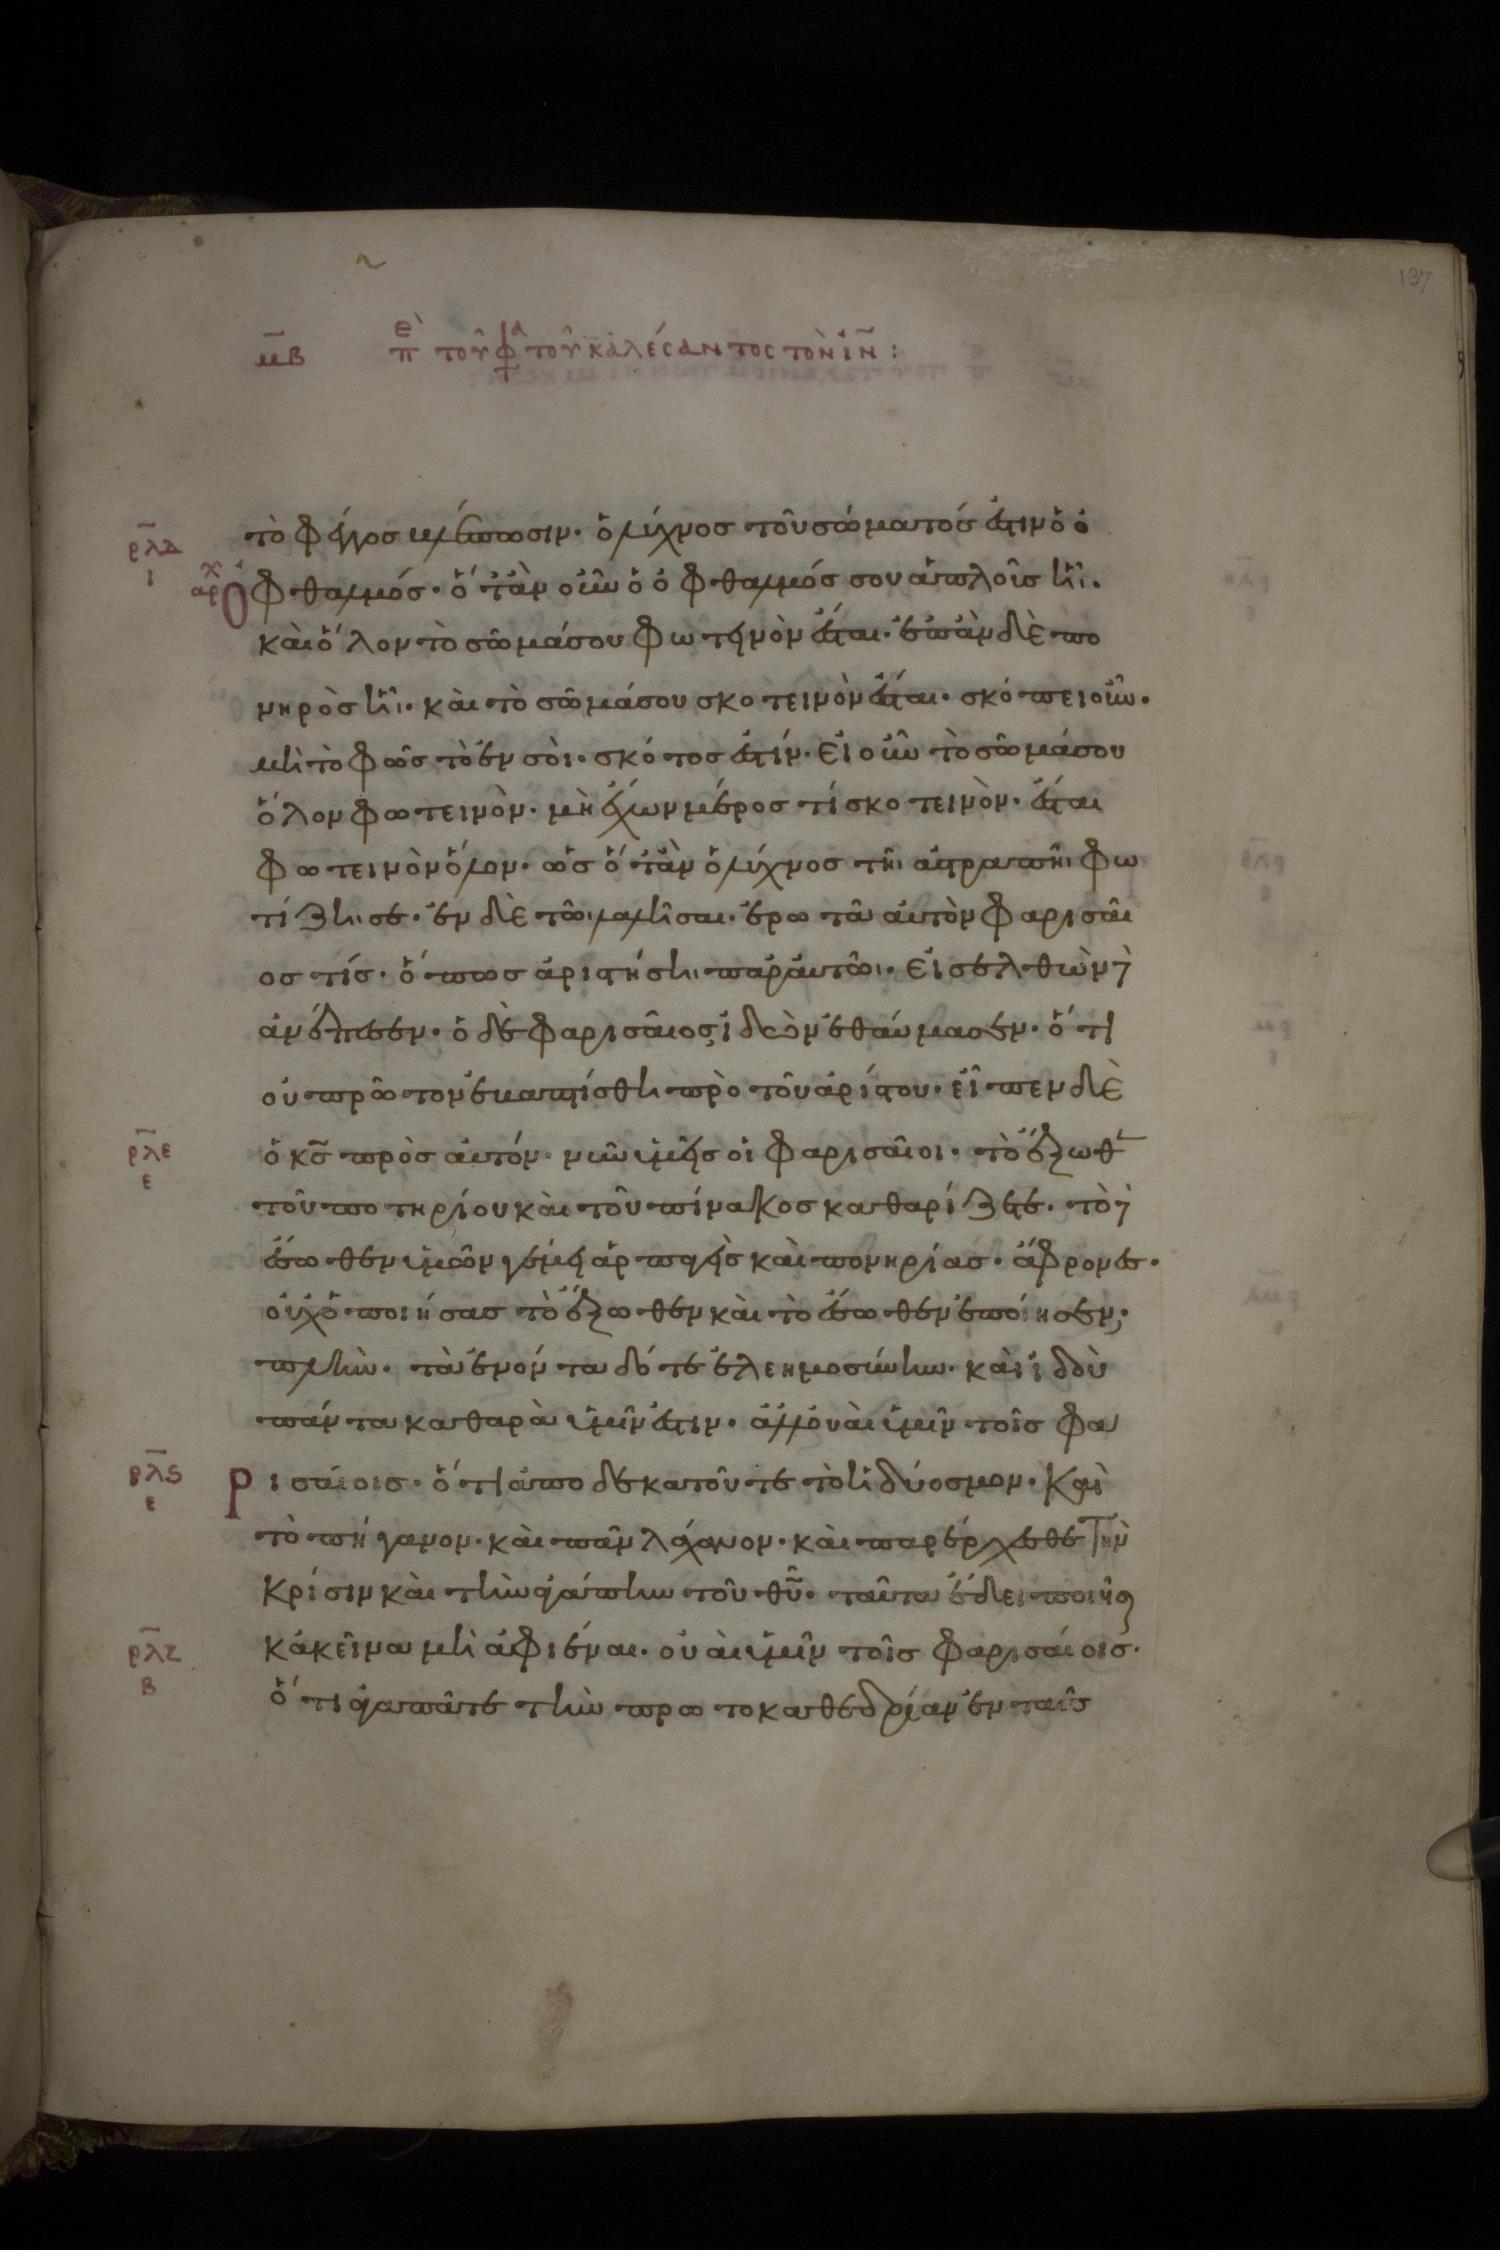 137
μ̅β̅ πὲ τοῦ φα̣ρ τοῦ καλέσαντος τὸν ἰν̅:
τὸ φέγγος βλέπωσιν· ὁ λύχνος τοῦ σώματός ἐστιν ὁ ὀ
ρ̅λ̅δ̅ ι
αρχ
φθαλμός· ὅταν οὖν ὁ ὀφθαλμός σου ἁπλοῦς ἦι·
καὶ ὅλον τὸ σῶμά σου φωτεινόν ἔσται· ἐπὰν δὲ πο
νηρὸς ἦι· καὶ τὸ σῶμά σου σκοτεινὸν ἔσται· σκόπει οὖν·
μὴ τὸ φῶς τὸ ἐν σοὶ· σκότος ἐστίν· εἰ οὖν τὸ σῶμά σου
ὅλον φωτεινὸν· μὴ ἔχων μέρος τί σκοτεινὸν· ἔσται
φωτεινὸν ὅλον· ὡς ὅταν ὁ λύχνος τῆι ἀστραπῆι φω
τίζηι σε· ἐν δὲ τῶι λαλῆσαι· ἐρωτᾶ αὐτὸν φαρισαῖ
ος τίς· ὅπως ἀριστήσηι παρ' αὐτῶι· εἰσελθὼν δὲ
ἀνέπεσεν· ὁ δὲ φαρισαῖος ἰδὼν ἐθαύμασεν· ὅτι
οὐ πρῶτον ἐβαπτίσθη πρὸ τοῦ ἀρίστου· εἶπεν δὲ
ρ̅λ̅ε̅ ε
ὁ κς̅ πρὸς αὐτόν· νῦν ὑμεῖς οἱ φαρισαῖοι· τὸ ἔξωθ
τοῦ ποτηρίου καὶ τοῦ πίνακος καθαρίζετε· τὸ δὲ
ἔσωθεν ὑμῶν γέμει ἁρπαγῆς καὶ πονηρίας· ἄφρονες·
οὐχ ὁ ποιήσας τὸ ἔξωθεν καὶ τὸ ἔσωθεν ἐποίησεν;
πλὴν· τὰ ἐνόντα δότε ἐλεημοσύνην· καὶ ἰδοὺ
πάντα καθαρὰ ὑμῖν ἐστιν· ἀλλ' οὐαὶ ὑμῖν τοῖς φα
ρ̅λ̅ς̅ ε
ρισαίοις· ὅτι ἀποδεκατοῦτε τὸ ἡδύοσμον· καὶ
τὸ πήγανον· καὶ πᾶν λάχανον· καὶ παρέρχεσθε τὴν
κρίσιν καὶ τὴν ἀγάπην τοῦ θυ̅· ταῦτα ἔδει ποιῆσαι
ρ̅λ̅ζ̅ β
κἀκεῖνα μὴ ἀφιέναι· οὐαὶ ὑμῖν τοῖς φαρισαίοις·
ὅτι ἀγαπᾶτε τὴν πρωτοκαθεδρίαν ἐν ταῖς